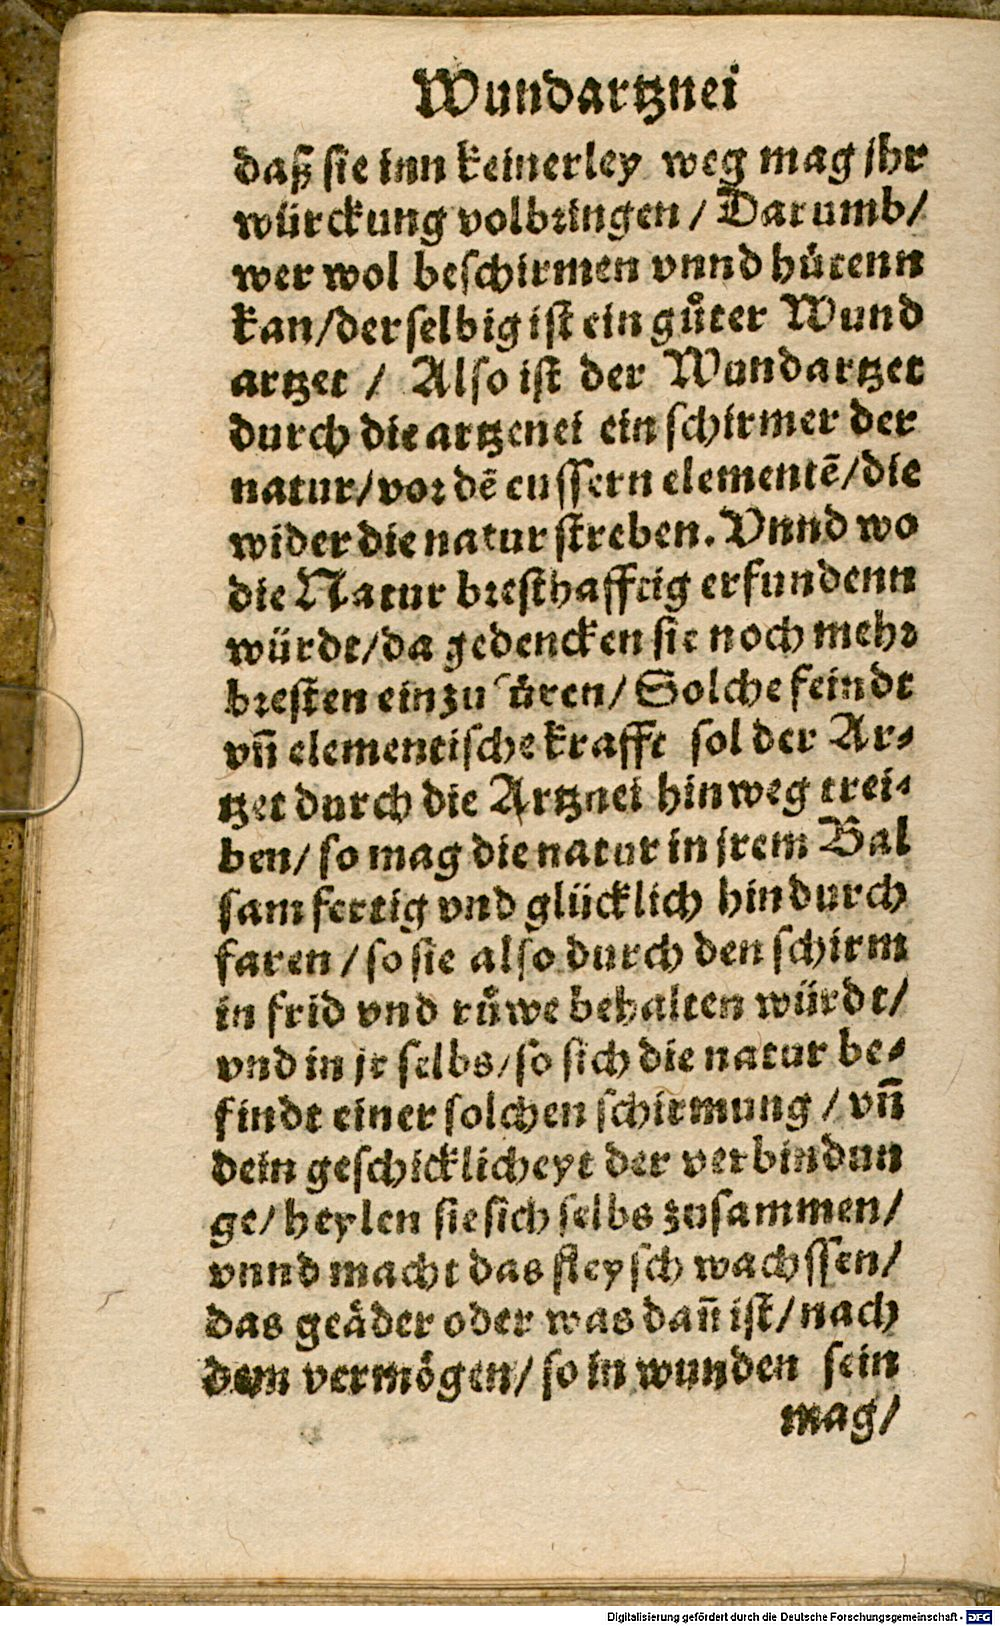 Wundartznei
daß sie inn keinerley weg mag jhr
würckung volbringen / Darumb/
wer wol beschirmen vnnd hütenn
kan/derselbig ist ein gůter Wund
artzet / Also ist der Wundartzet
durch die artzenei ein schirmer der
natur/vor dē eussern elementē/die
wider die natur streben. Vnnd wo
die Natur bresthafftig erfundenn
würdt/da gedencken sie noch mehr
bresten einzu ůren/ Solche feindt
vn̄ elementische krafft sol der Ar-
tzet durch die Artznei hinweg trei-
ben/ so mag die natur in jrem Bal
sam fertig vnd glücklich hindurch
faren / so sie also durch den schirm
in frid vnd růwe behalten würdt/
vnd in jr selbs/so sich die natur be-
findt einer solchen schirmung / vn̄
dein geschicklicheyt der verbindun
ge/ heylen sie sich selbs zusammen/
vnnd macht das fleysch wachssen/
das geäder oder was dan̄ ist/nach
dem vermögen/ so in wunden sein
mag/
Digitalisierung gefördert durch die Deutsche Forschungsgemeinschaft - DFG